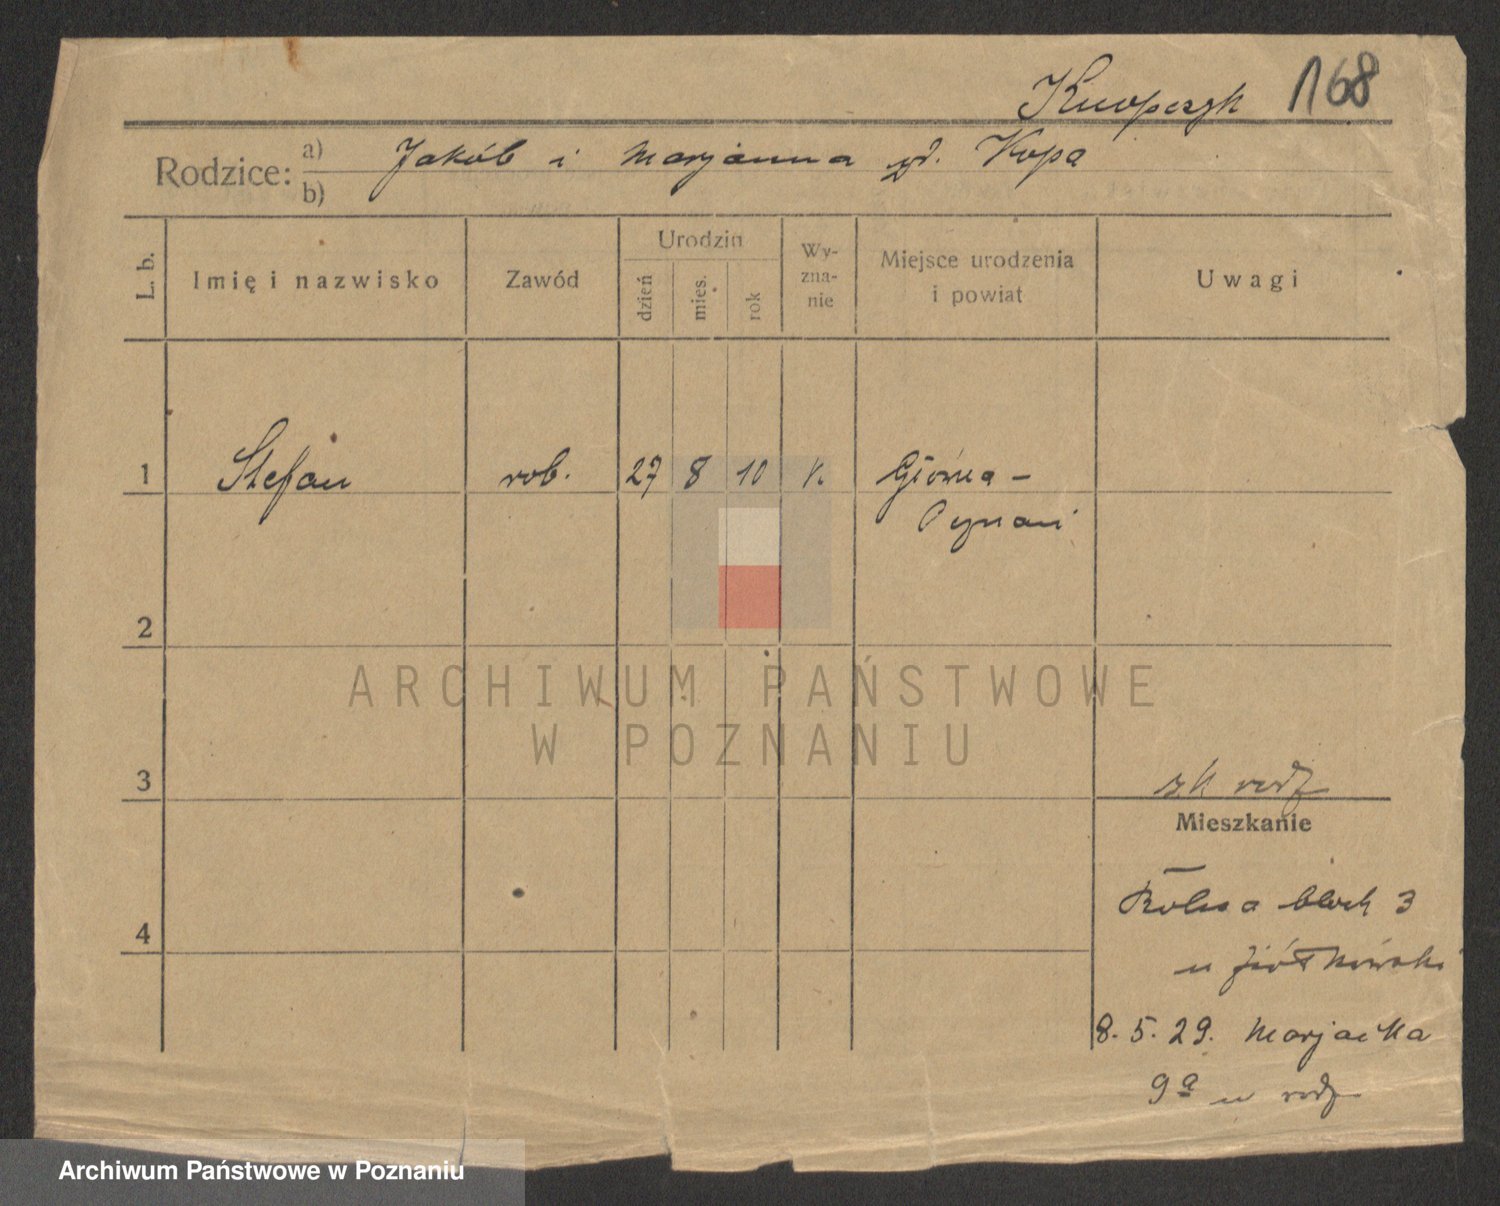 168
Rodzice: a) Jakób i Marjanna zd. Kopa
b)
L. b.
Imię i nazwisko
Zawód
Urodzin
dzień
mies.
rok
Wy-
zna-
nie
Miejsce urodzenia
i powiat
Uwagi
1 Stefan rob. 27 8 10 K. Główna -
Poznań
2
ARCHIWUM PAŃSTWOWE
W POZNANIU
3
rodz
Mieszkanie
Rolna block 3
u Ziółkowski
4
8. 5. 29. Marjacka
9a u rodz
Archiwum Państwowe w Poznaniu